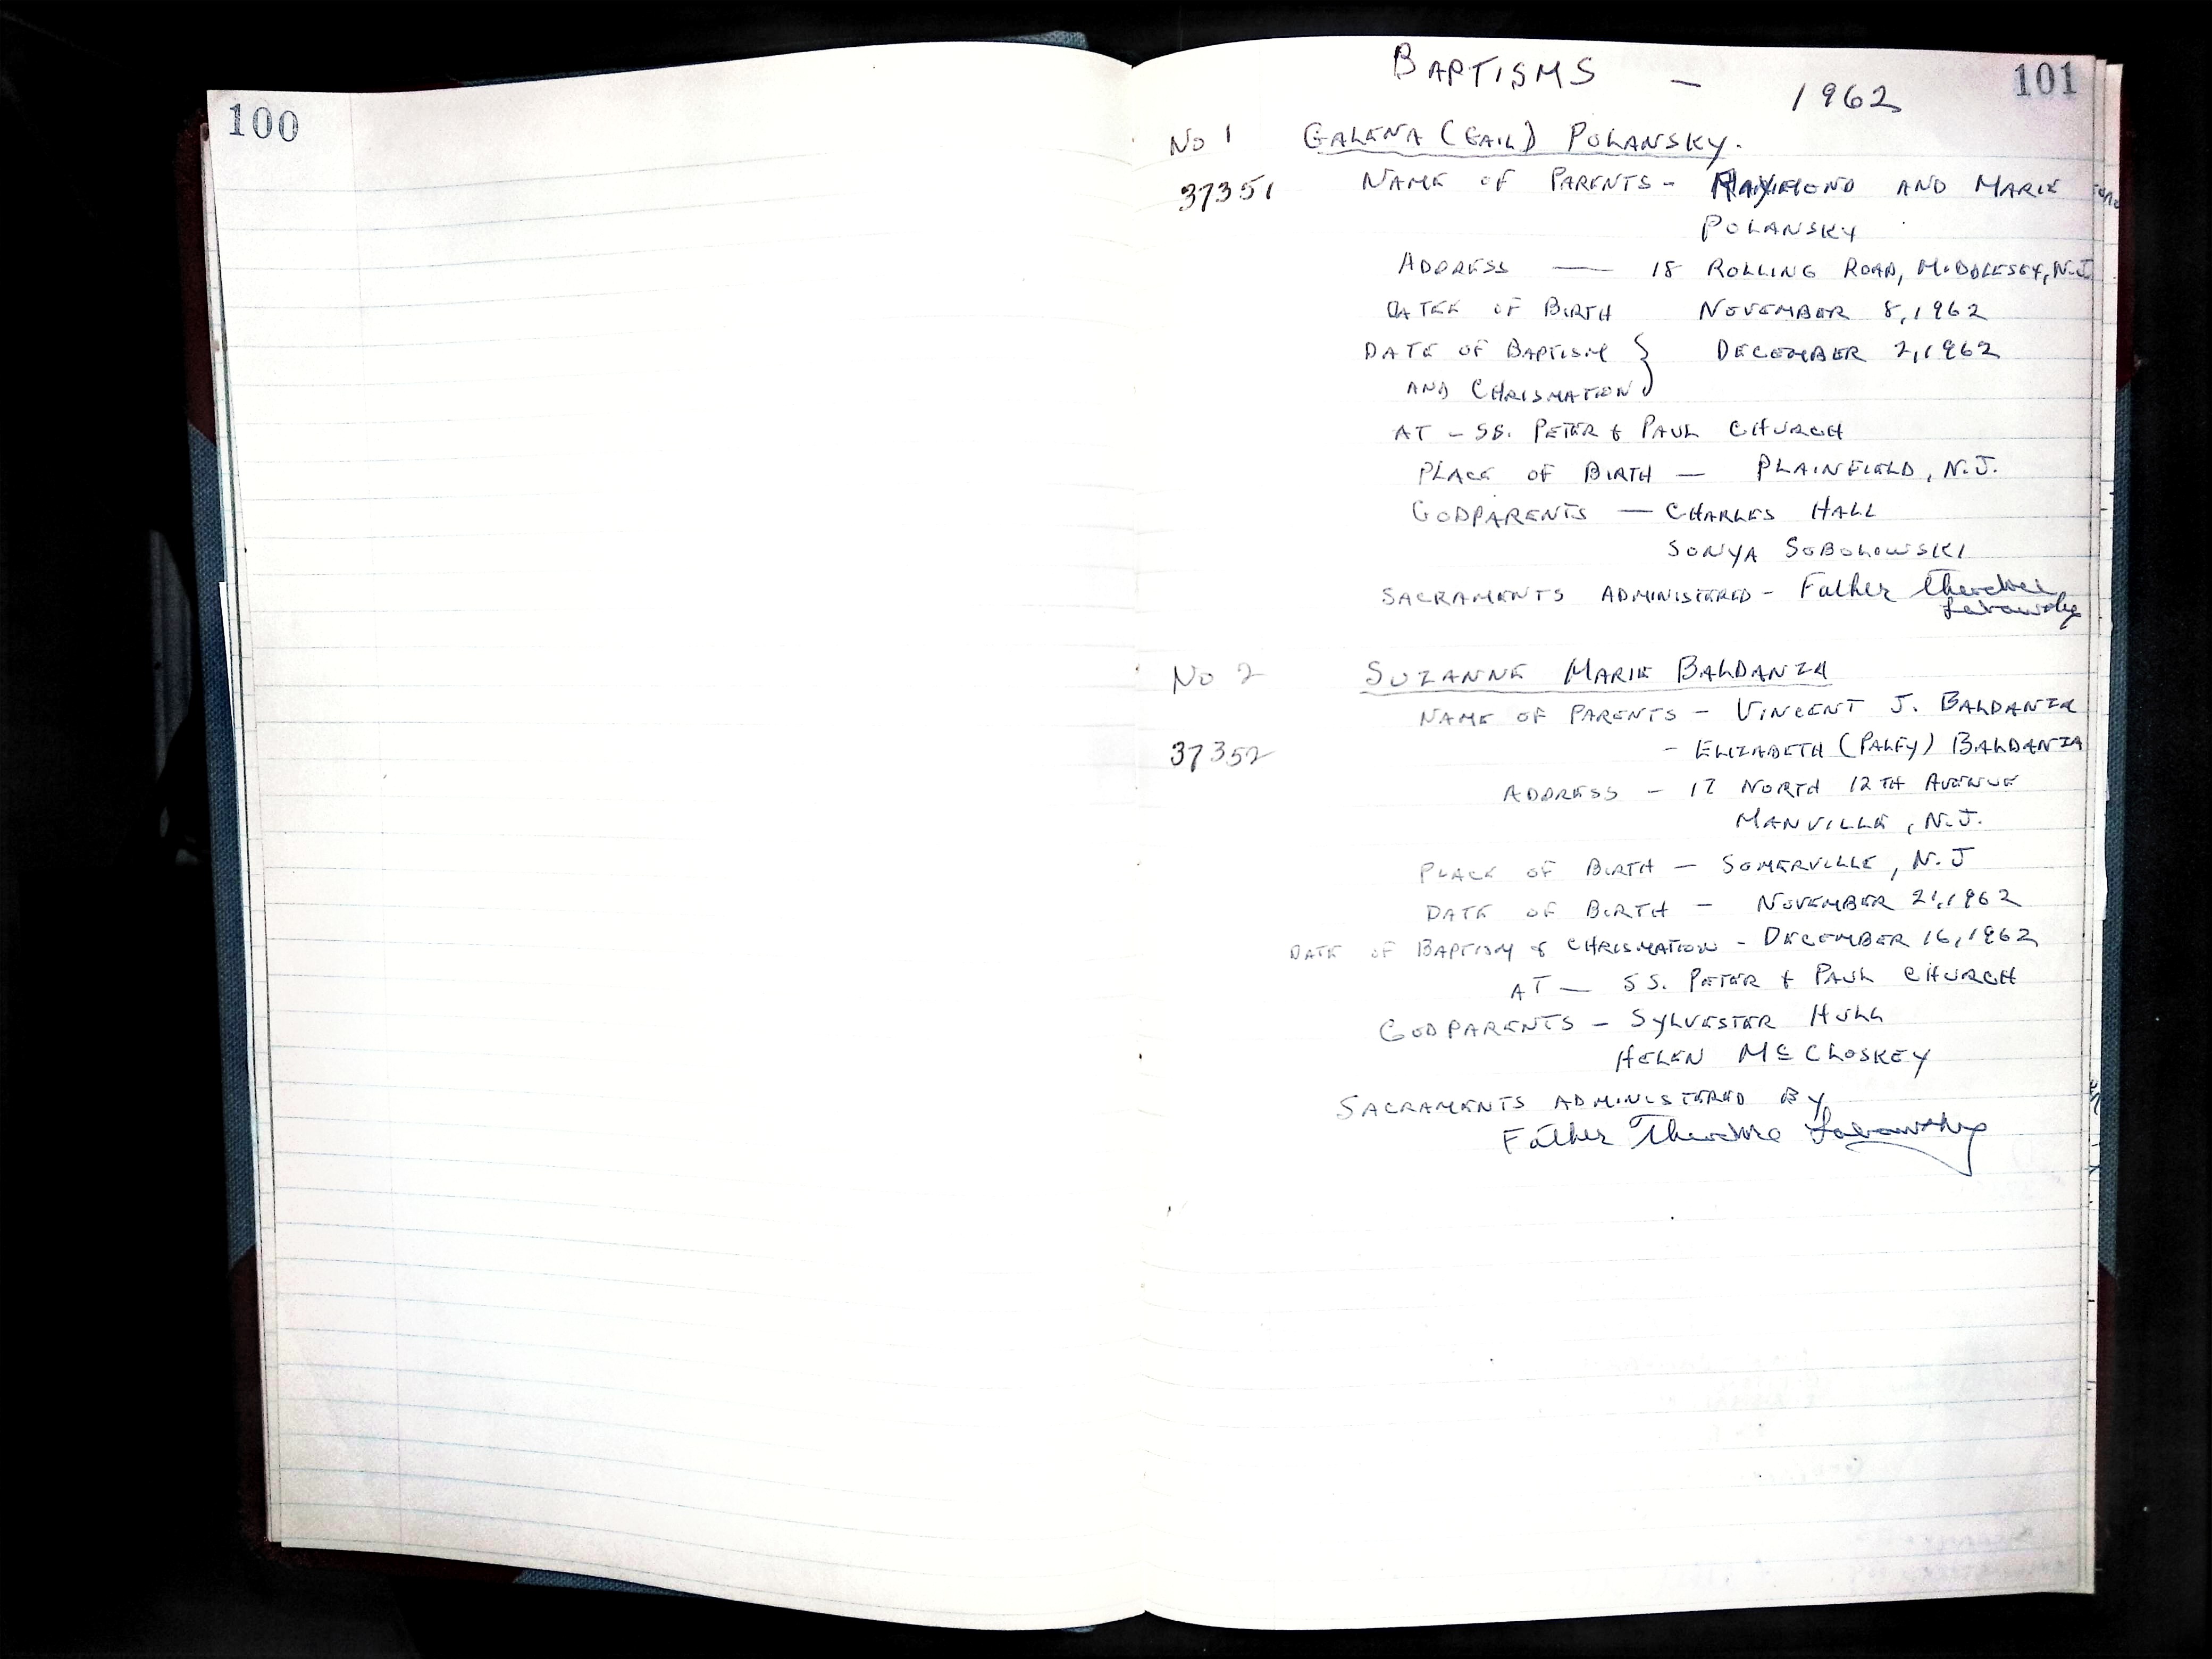 100
101
BAPTISMS - 1962
No 1 GALENA (GAIL) POLANSKY.
37351 NAME OF PARENTS - RAYMOND AND MARIE
POLANSKY
ADDRESS — 18 ROLLING ROAD, MIDDLESEX, N.J.
DATEE OF BIRTH NOVEMBER 8, 1962
DATE OF BAPTISM } DECEMBER 2, 1962
AND CHRISMATION
AT - SS. PETER & PAUL CHURCH
PLACE OF BIRTH — PLAINFIELD, N.J.
GODPARENTS — CHARLES HALL
SONYA SOBOLOWSKI
SACRAMENTS ADMINISTERED - Father Theodore
No 2 SUZANNE MARIE BALDANZA
NAME OF PARENTS - VINCENT J. BALDANZA
37352 - ELIZABETH (PALEY) BALDANZA
ADDRESS - 17 NORTH 12TH AVENUE
MANVILLE, N.J.
PLACE OF BIRTH — SOMERVILLE, N.J
DATE OF BIRTH - NOVEMBER 21, 1962
DATE OF BAPTISM & CHRISMATION - DECEMBER 16, 1962
AT — SS. PETER & PAUL CHURCH
GODPARENTS - SYLVESTER HULL
HELEN MCCLOSKEY
SACRAMENTS ADMINISTERED BY
Father Theodore